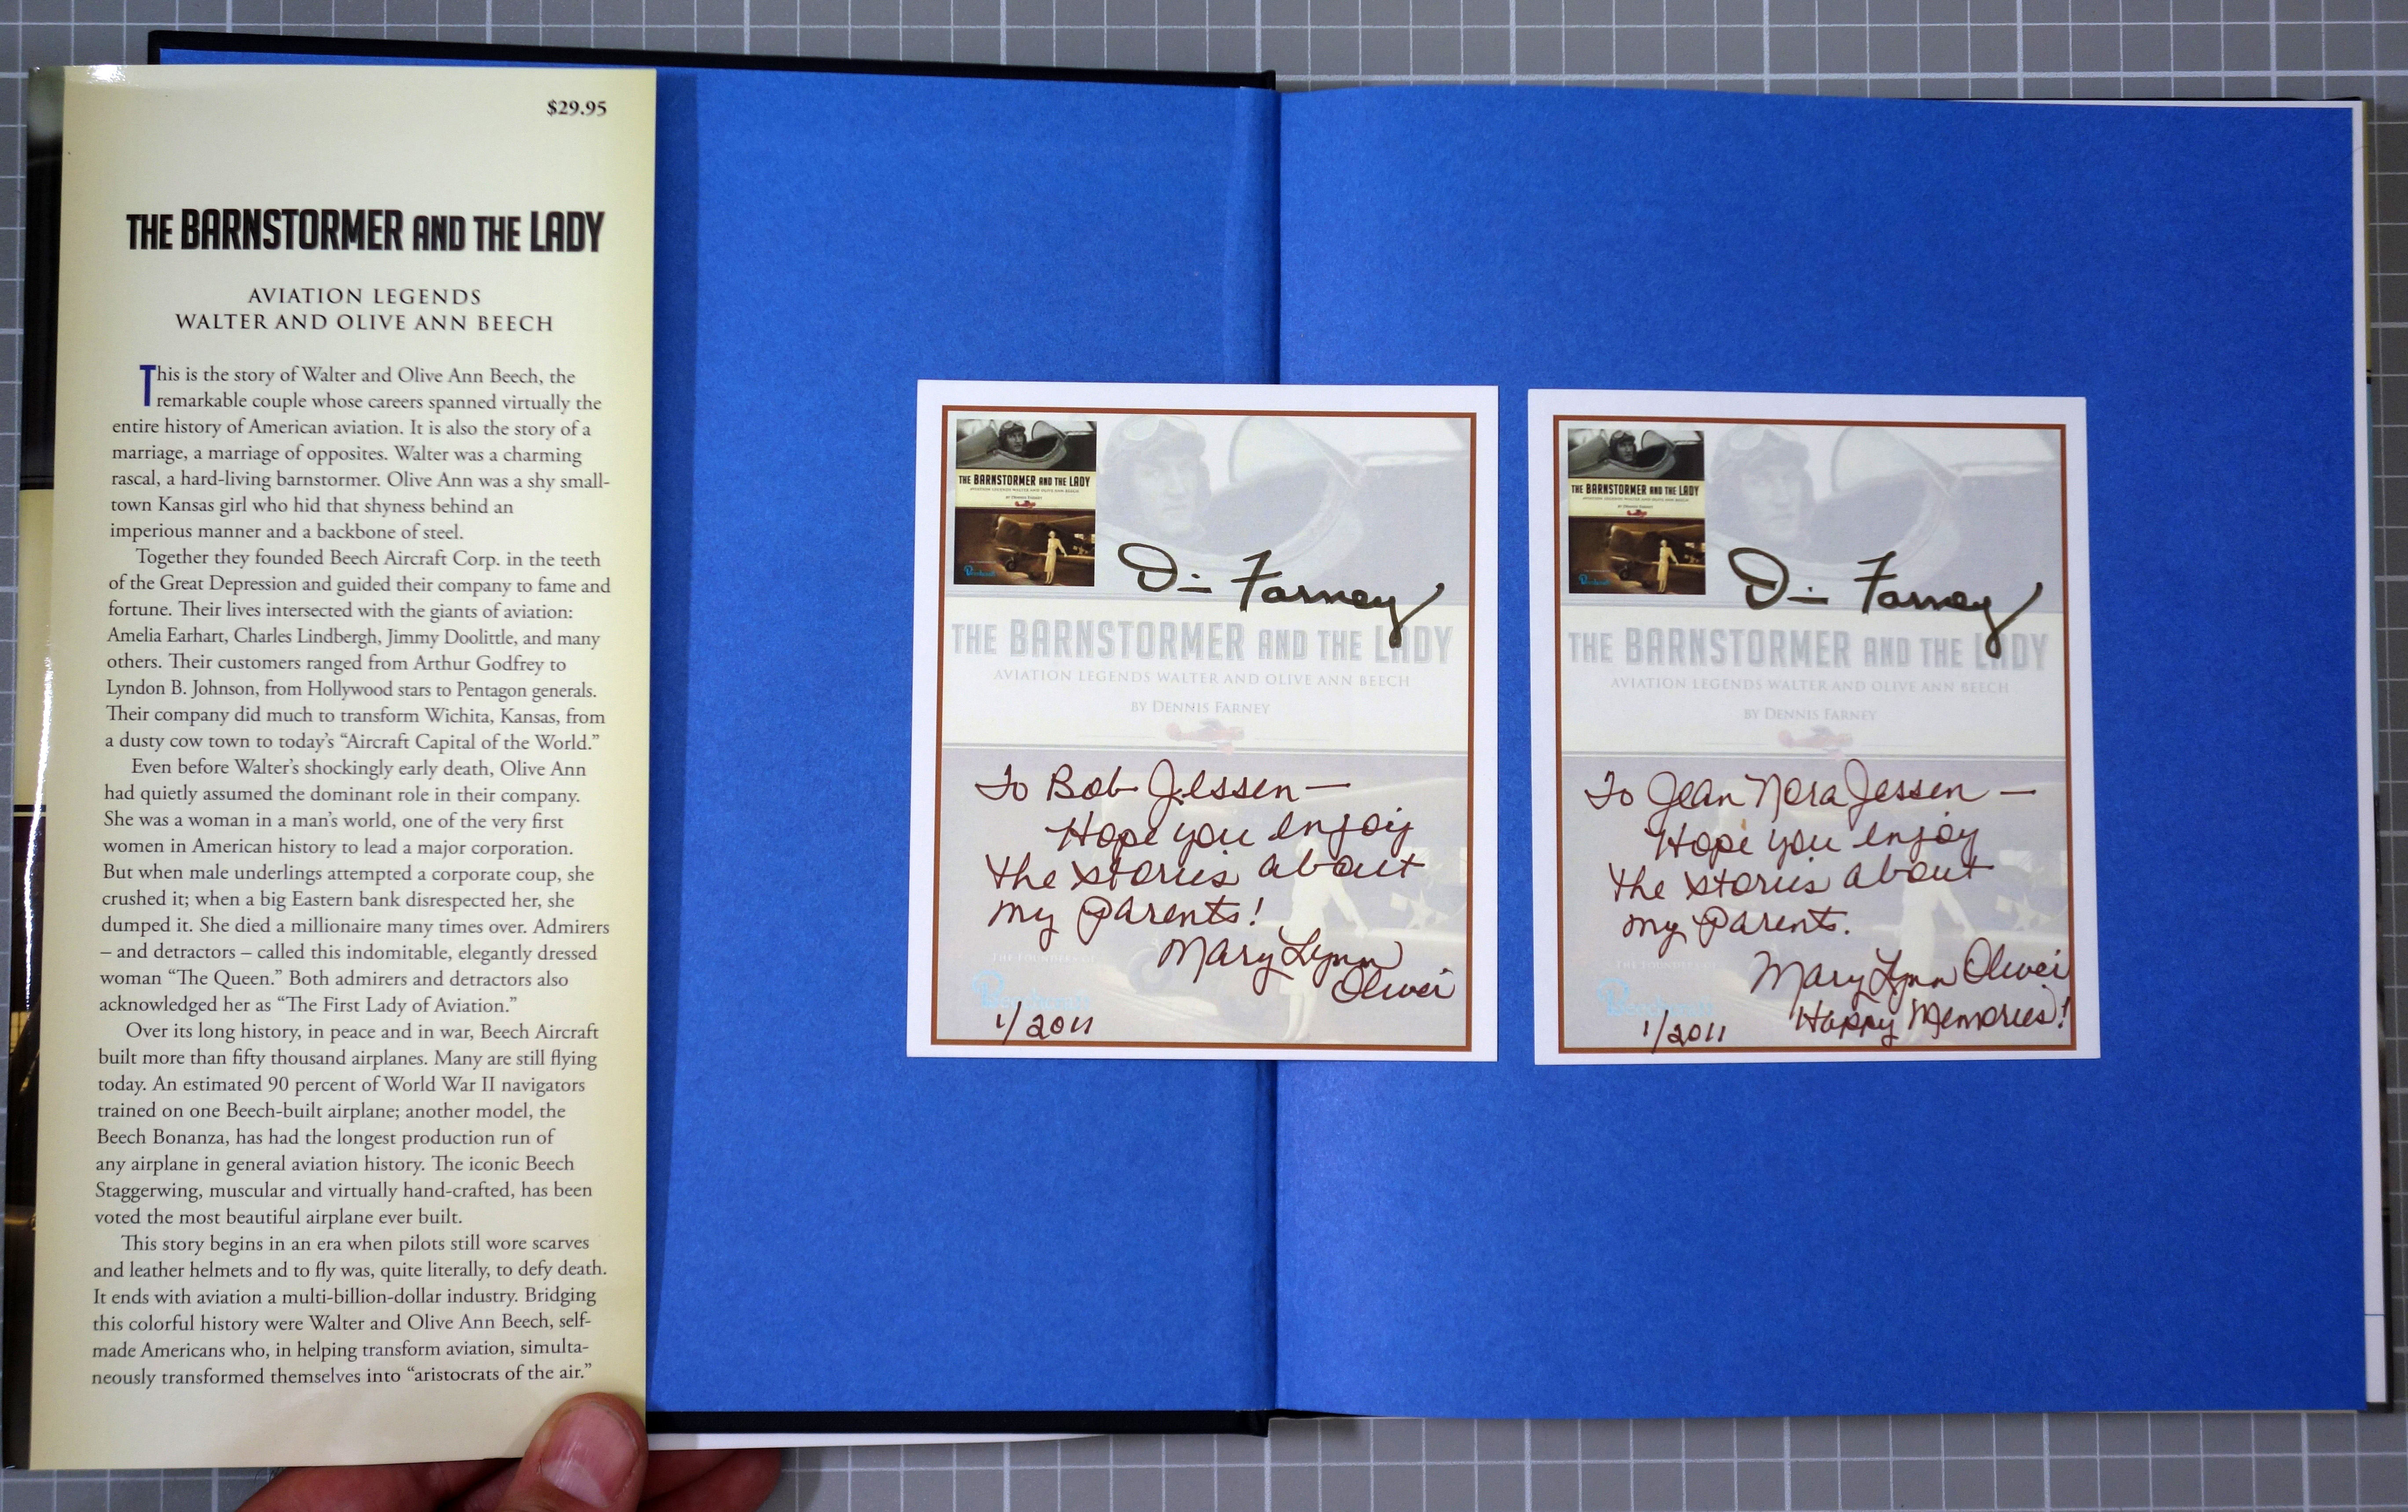 $29.95
THE BARNSTORMER AND THE LADY
AVIATION LEGENDS
WALTER AND OLIVE ANN BEECH
This is the story of Walter and Olive Ann Beech, the
remarkable couple whose careers spanned virtually the
entire history of American aviation. It is also the story of a
marriage, a marriage of opposites. Walter was a charming
rascal, a hard-living barnstormer. Olive Ann was a shy small-
town Kansas girl who hid that shyness behind an
imperious manner and a backbone of steel.
Together they founded Beech Aircraft Corp. in the teeth
of the Great Depression and guided their company to fame and
fortune. Their lives intersected with the giants of aviation:
Amelia Earhart, Charles Lindbergh, Jimmy Doolittle, and many
others. Their customers ranged from Arthur Godfrey to
Lyndon B. Johnson, from Hollywood stars to Pentagon generals.
Their company did much to transform Wichita, Kansas, from
a dusty cow town to today's “Aircraft Capital of the World.”
Even before Walter's shockingly early death, Olive Ann
had quietly assumed the dominant role in their company.
She was a woman in a man's world, one of the very first
women in American history to lead a major corporation.
But when male underlings attempted a corporate coup, she
crushed it; when a big Eastern bank disrespected her, she
dumped it. She died a millionaire many times over. Admirers
– and detractors – called this indomitable, elegantly dressed
woman “The Queen.” Both admirers and detractors also
acknowledged her as “The First Lady of Aviation.”
Over its long history, in peace and in war, Beech Aircraft
built more than fifty thousand airplanes. Many are still flying
today. An estimated 90 percent of World War II navigators
trained on one Beech-built airplane; another model, the
Beech Bonanza, has had the longest production run of
any airplane in general aviation history. The iconic Beech
Staggerwing, muscular and virtually hand-crafted, has been
voted the most beautiful airplane ever built.
This story begins in an era when pilots still wore scarves
and leather helmets and to fly was, quite literally, to defy death.
It ends with aviation a multi-billion-dollar industry. Bridging
this colorful history were Walter and Olive Ann Beech, self-
made Americans who, in helping transform aviation, simulta-
neously transformed themselves into “aristocrats of the air.”
THE BARNSTORMER AND THE LADY
AVIATION LEGENDS WALTER AND OLIVE ANN BEECH
BY DENNIS FARNEY
Farney
THE BARNSTORMER AND THE LADY
AVIATION LEGENDS WALTER AND OLIVE ANN BEECH
BY DENNIS FARNEY
To Bob Jessen —
Hope you enjoy
the stories about
my Parents!
Mary Lynn
Oliver
THE FOUNDERS OF
1/2011
THE BARNSTORMER AND THE LADY
AVIATION LEGENDS WALTER AND OLIVE ANN BEECH
BY DENNIS FARNEY
Farney
THE BARNSTORMER AND THE LADY
AVIATION LEGENDS WALTER AND OLIVE ANN BEECH
BY DENNIS FARNEY
To Jean Nora Jessen —
Hope you enjoy
the stories about
my Parents.
Mary Lynn Oliver
THE FOUNDERS OF
Happy Memories!
1/2011